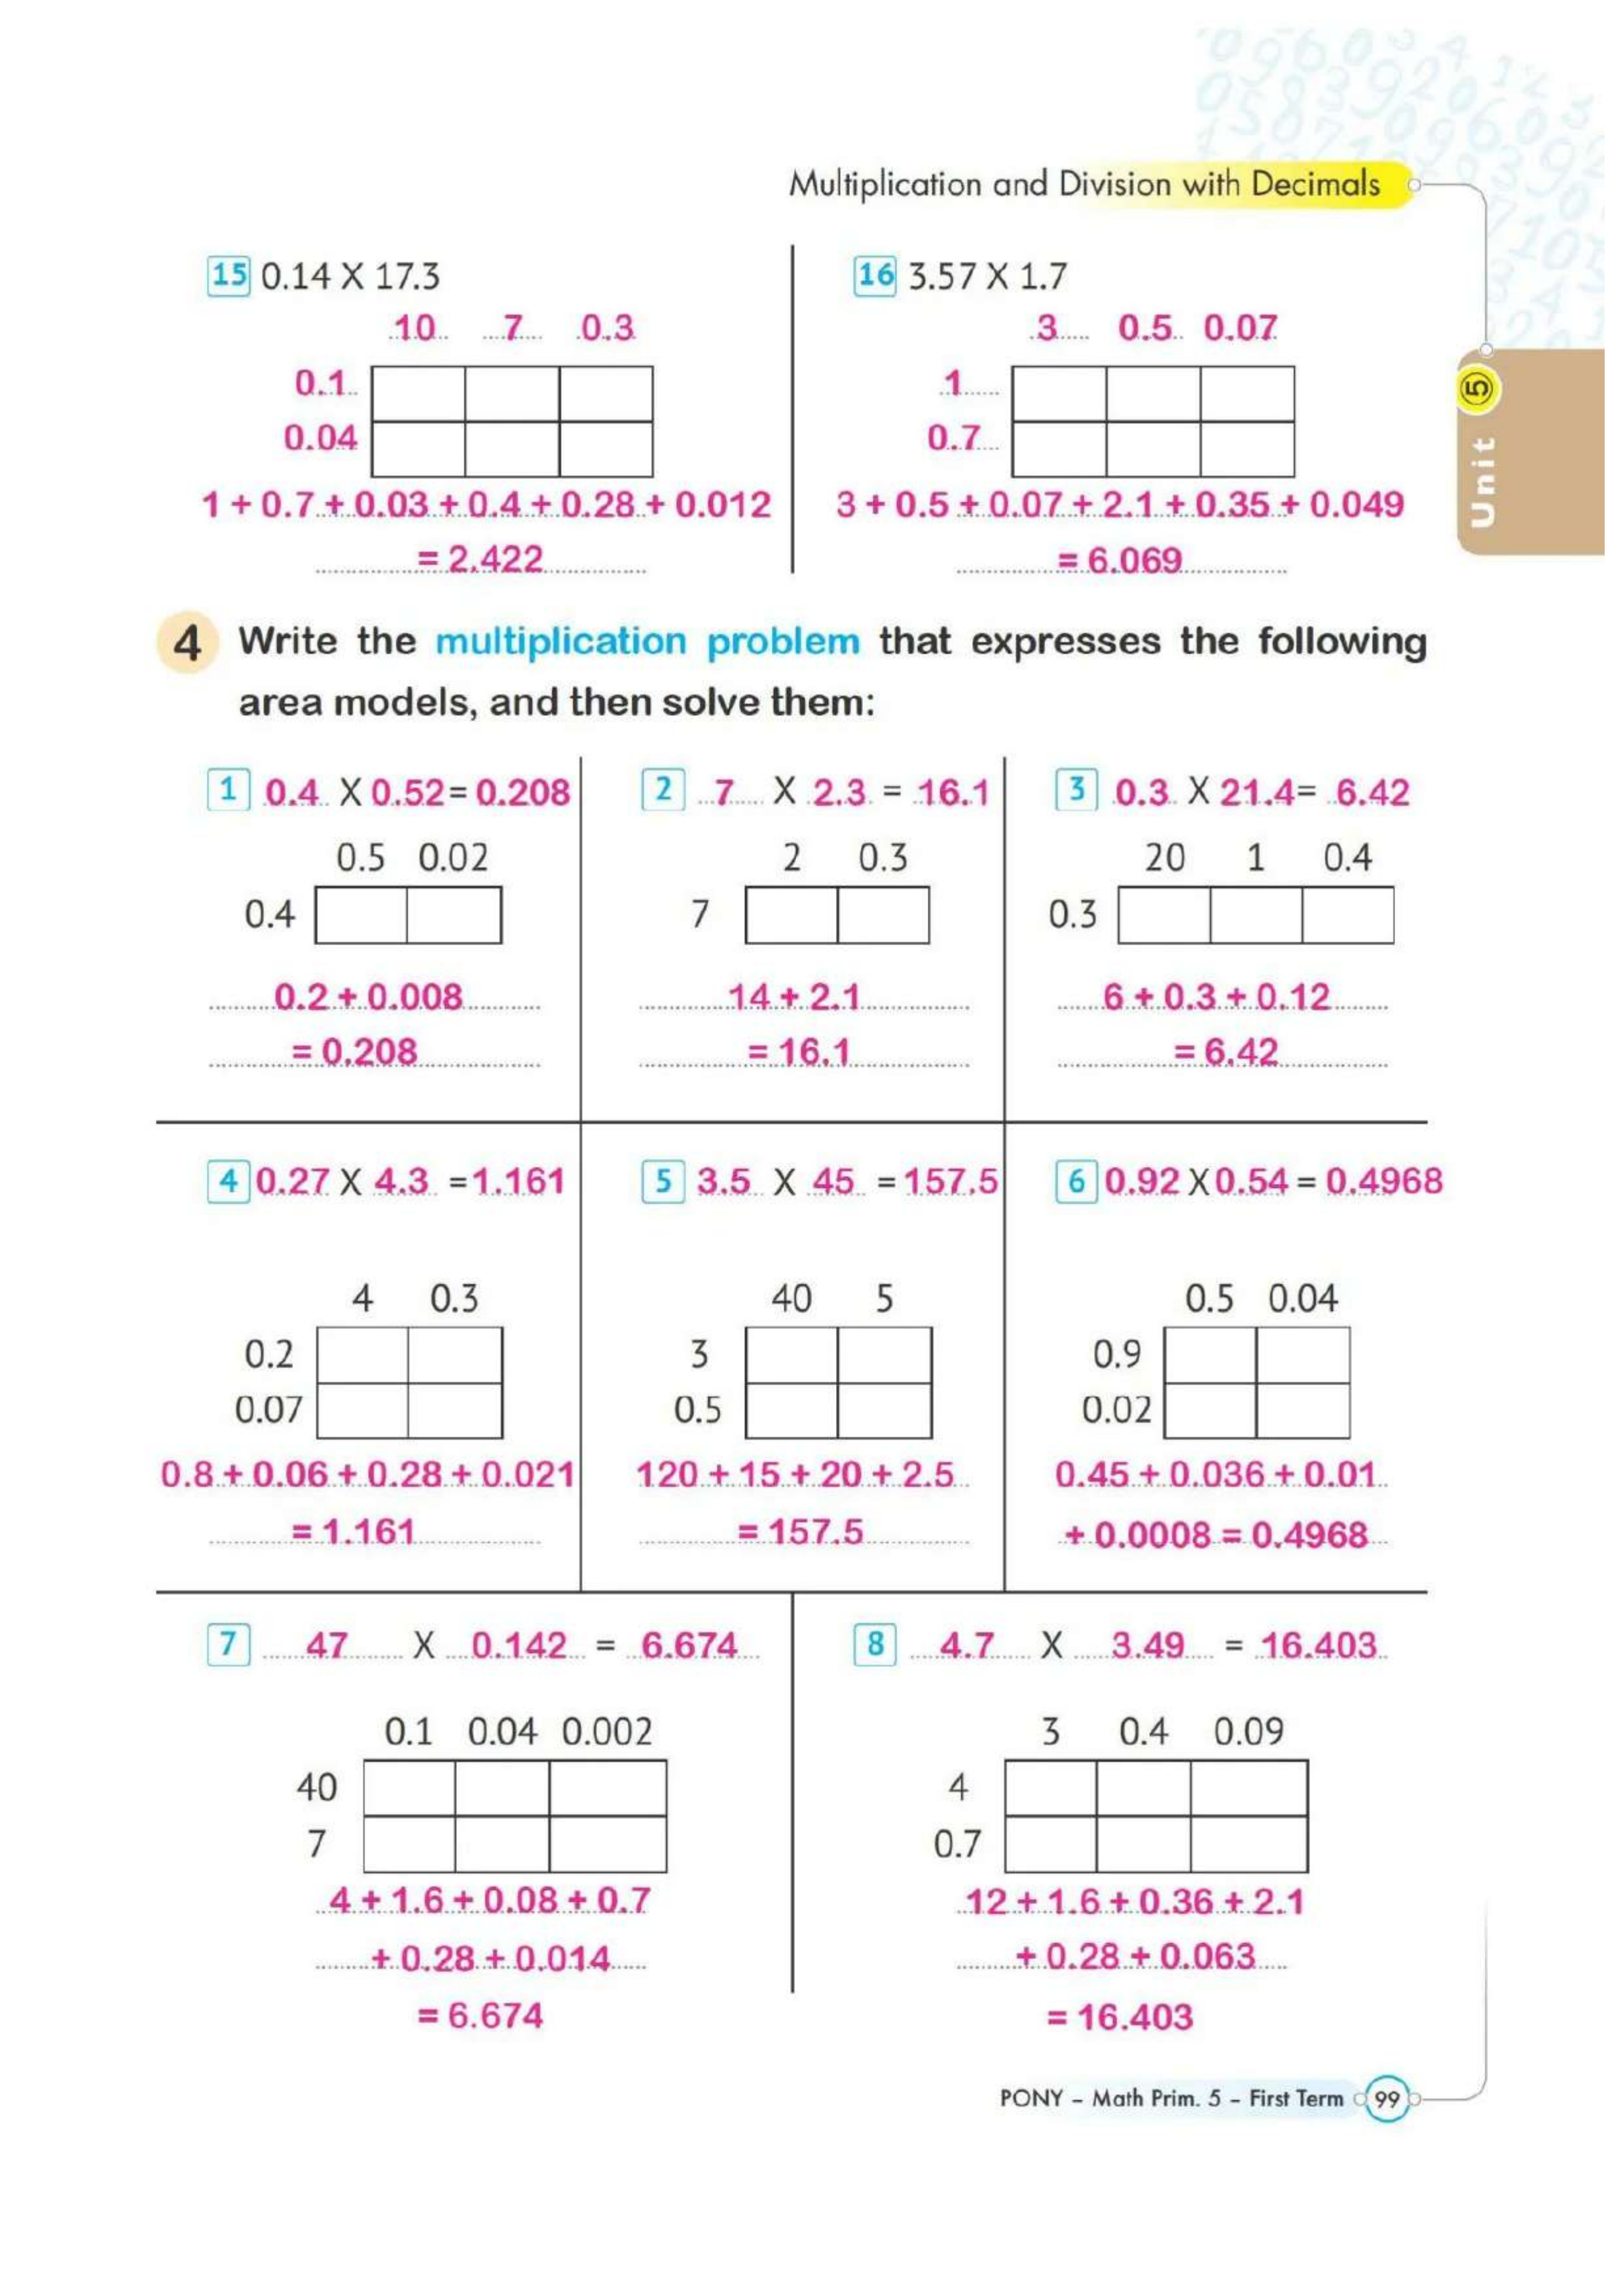 Multiplication and Division with Decimals
15 0.14 X 17.3
10 7 0.3
0.1
0.04
1 + 0.7 + 0.03 + 0.4 + 0.28 + 0.012
= 2.422
16 3.57 X 1.7
3 0.5 0.07
1
0.7
3 + 0.5 + 0.07 + 2.1 + 0.35 + 0.049
= 6.069
Unit 5
4 Write the multiplication problem that expresses the following
area models, and then solve them:
1 0.4 X 0.52 = 0.208
0.5 0.02
0.4
0.2 + 0.008
= 0.208
2 7 X 2.3 = 16.1
2 0.3
7
14 + 2.1
= 16.1
3 0.3 X 21.4 = 6.42
20 1 0.4
0.3
6 + 0.3 + 0.12
= 6.42
4 0.27 X 4.3 = 1.161
4 0.3
0.2
0.07
0.8 + 0.06 + 0.28 + 0.021
= 1.161
5 3.5 X 45 = 157.5
40 5
3
0.5
120 + 15 + 20 + 2.5
= 157.5
6 0.92 X 0.54 = 0.4968
0.5 0.04
0.9
0.02
0.45 + 0.036 + 0.01
+ 0.0008 = 0.4968
7 47 X 0.142 = 6.674
0.1 0.04 0.002
40
7
4 + 1.6 + 0.08 + 0.7
+ 0.28 + 0.014
= 6.674
8 4.7 X 3.49 = 16.403
3 0.4 0.09
4
0.7
12 + 1.6 + 0.36 + 2.1
+ 0.28 + 0.063
= 16.403
PONY - Math Prim. 5 - First Term 99